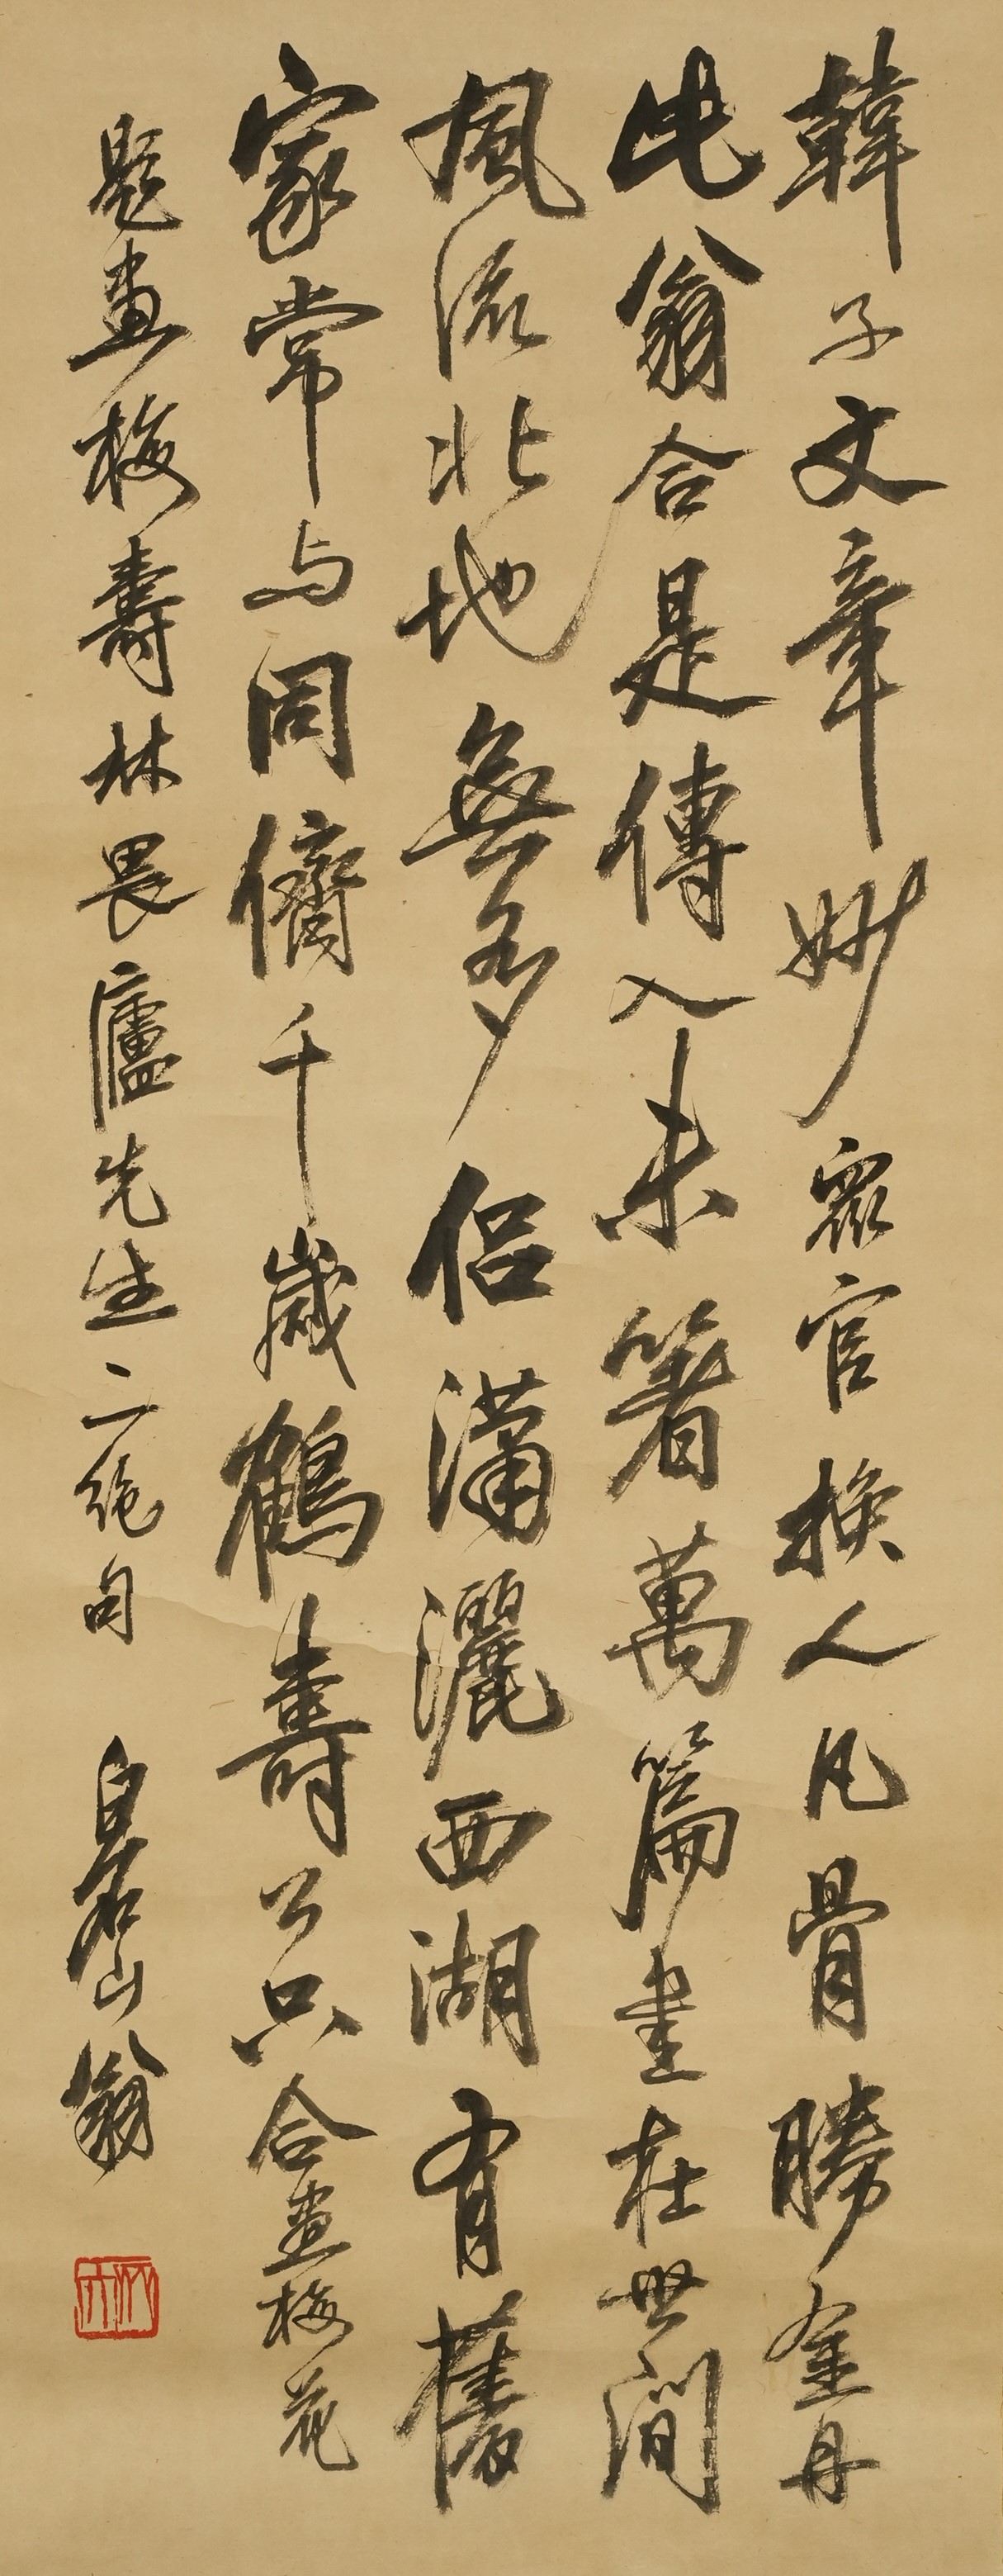 韓子文章妙眾官換人凡骨勝金丹
此翁合是傳人未箸萬篇書在世間
風流北地無多侶瀟灑西湖有舊
家常与同儕千歲鶴壽公只合畫梅花
題畫梅壽林畏廬先生二絕句 白石山翁